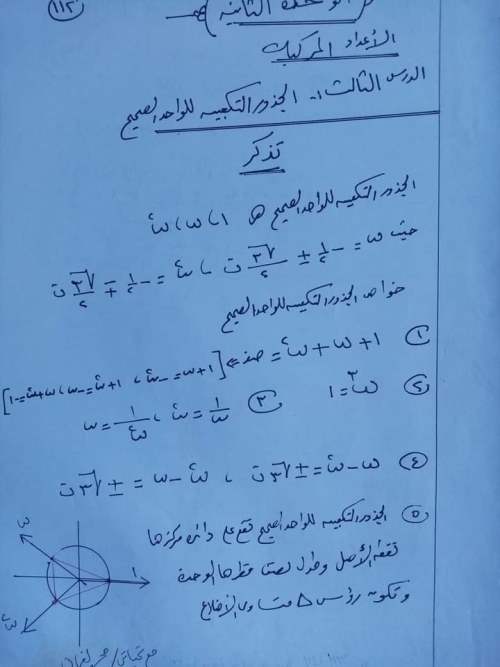 ١١٢
الوحدة الثانية
الأعداد المركبة
الدرس الثالث :- الجذور التكعيبية للواحد الصحيح
تذكر
الجذور التكعيبية للواحد الصحيح هى ١ ، ω ، ω²
حيث ω = -١/٢ ± √٣/٢ ت ، ω² = -١/٢ ∓ √٣/٢ ت
خواص الجذور التكعيبية للواحد الصحيح
① ١ + ω + ω² = صفر ⇐ [١ + ω = -ω² ، ١ + ω² = -ω ، ω + ω² = -١]
② ω³ = ١ ③ ١/ω = ω² ، ١/ω² = ω
④ ω - ω² = ± √٣ ت ، ω² - ω = ± √٣ ت
⑤ الجذور التكعيبية للواحد الصحيح تقع على دائرة مركزها
نقطة الأصل وطول نصف قطرها الوحدة
وتكون رؤس △ متساوى الأضلاع
ω
١
ω²
مع تحياتى /